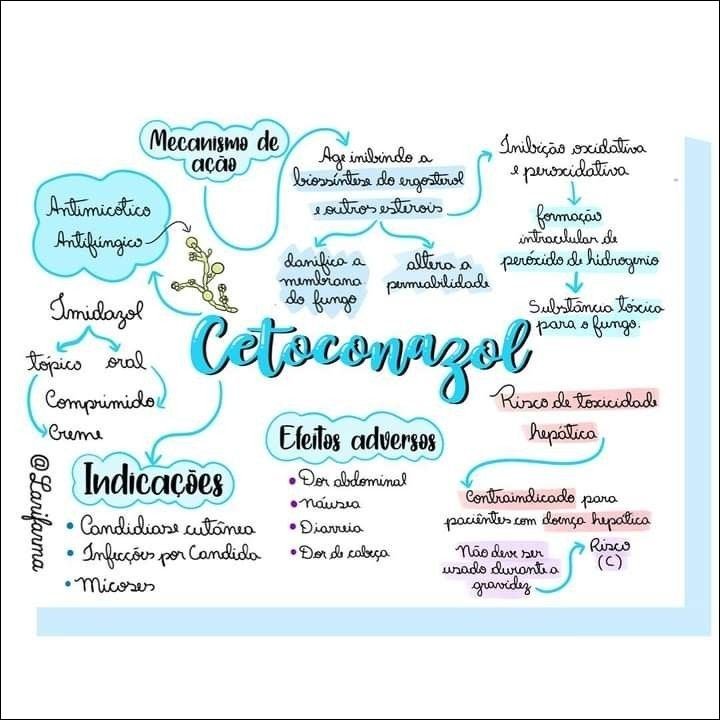 Mecanismo de
ação
Age inibindo a
biossíntese do ergosterol
e outros esterois
danifica a
membrana
do fungo
altera a
permiabilidade
Inibição oxidativa
e peroxidativa
formação
intracelular de
peróxido de hidrogenio
Substância tóxica
para o fungo.
Antimicótico
Antifúngico
Imidazol
tópico oral
Comprimido
Creme
Cetoconazol
@Larifarma
Indicações
• Candidiase cutânea
• Infecções por Candida
• Micoses
Efeitos adversos
• Dor abdominal
• náusea
• Diarreia
• Dor de cabeça
Risco de toxicidade
hepática
Contraindicado para
pacientes com doença hepática
Não deve ser
usado durante a
gravidez
Risco
(C)